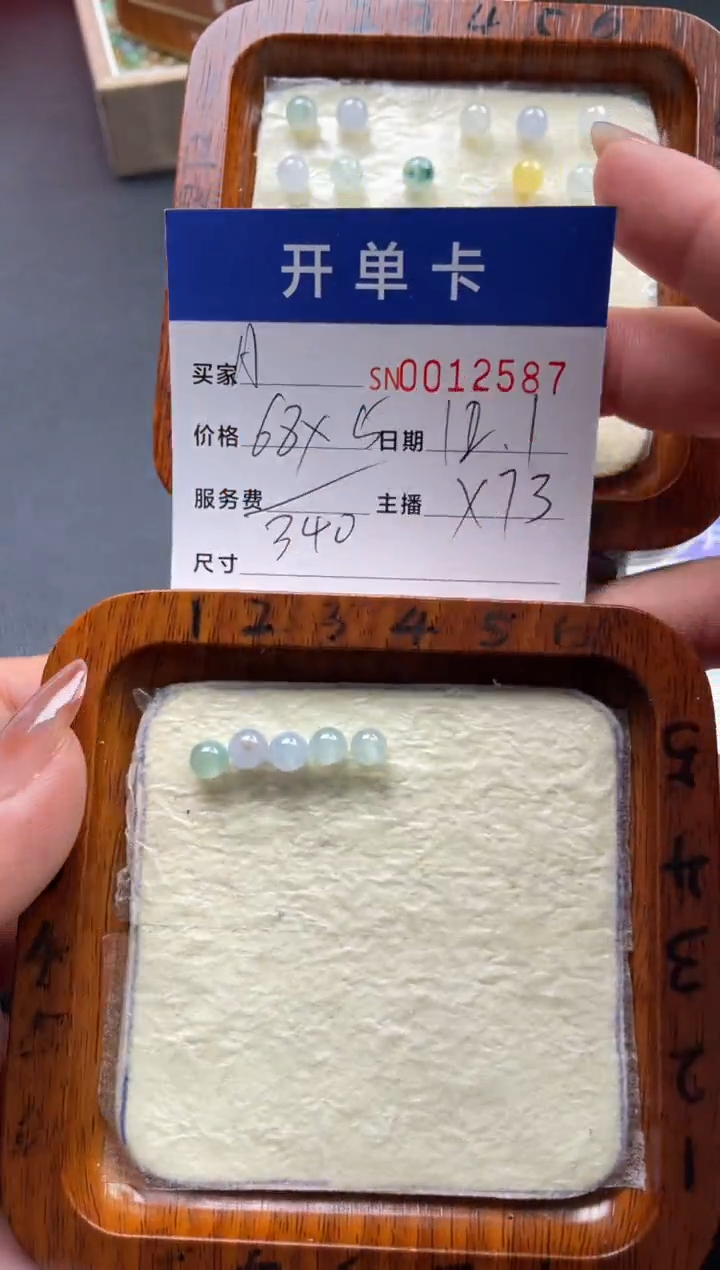 4 5 6
开单卡
买家 A SN0012587
价格 68×5 日期 12.1
服务费 / 主播 X73
340
尺寸
1 2 3 4 5 6
5
4
3
2
1
4